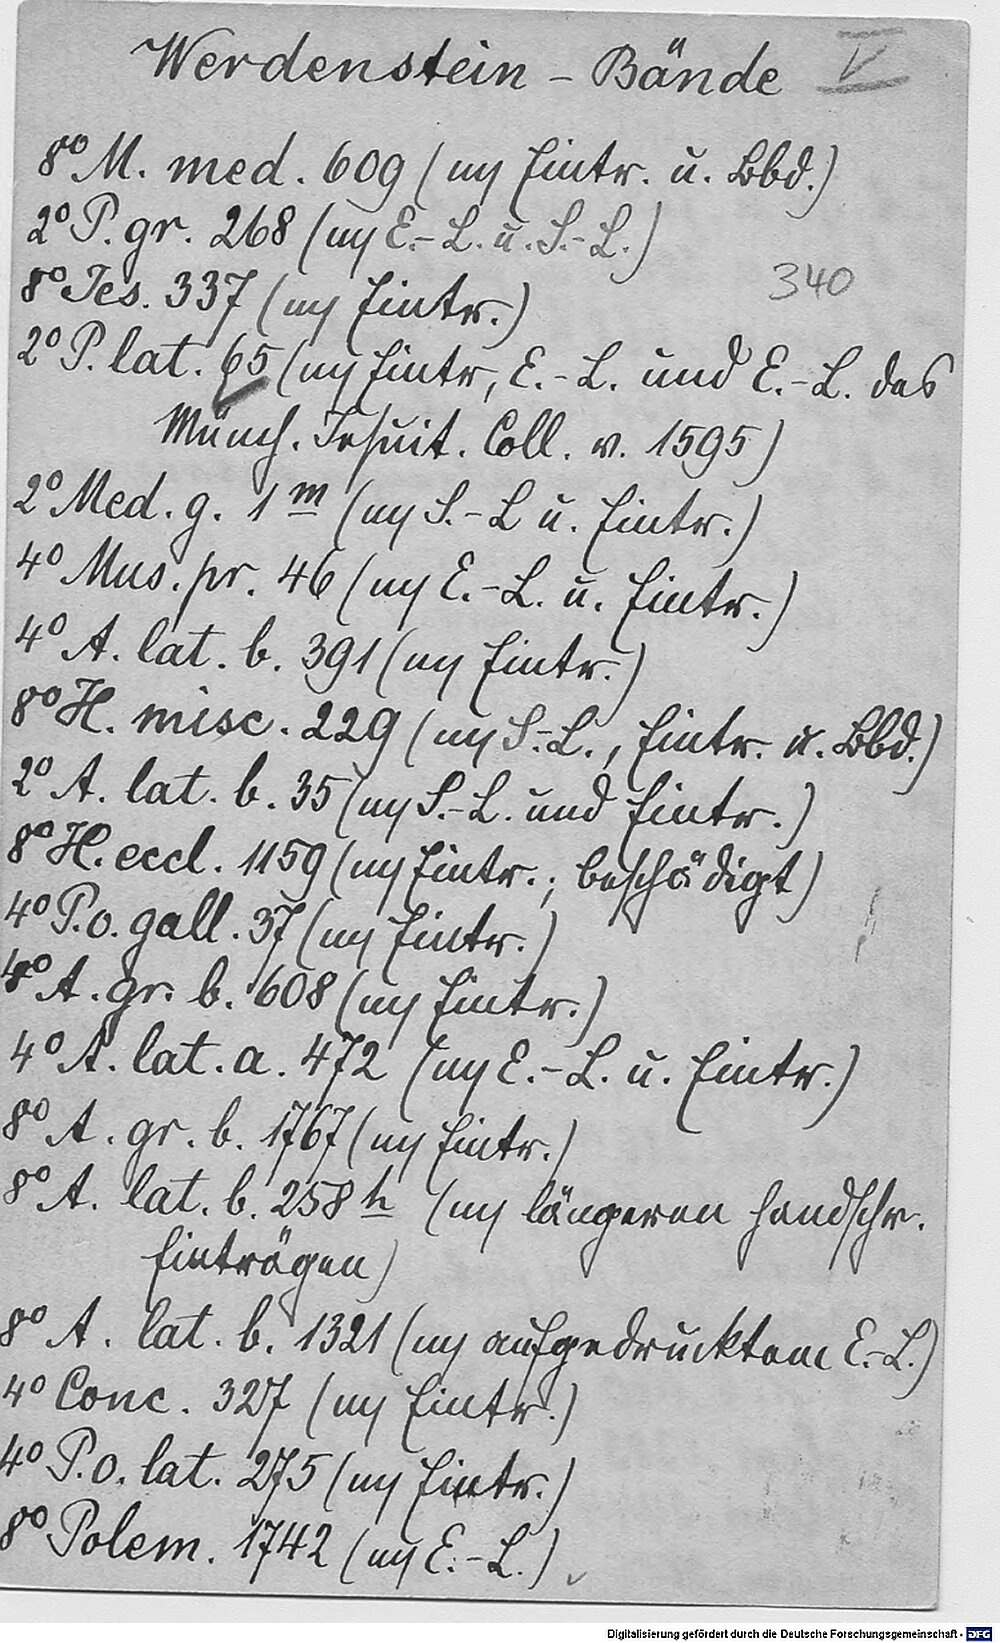 Werdenstein - Bände V
8° M. med. 609 (m Eintr. u. Bbd.)
2° P. gr. 268 (m E.-L. u. S.-L.)
8° Jes. 337 (m Eintr.) 340
2° P. lat. 65 (m Eintr, E.-L. und E.-L. des
Münch. Jesuit. Coll. v. 1595)
2° Med. g. 1 m (m S.-L u. Eintr.)
4° Mus. pr. 46 (m E.-L. u. Eintr.)
4° A. lat. b. 391 (m Eintr.)
8° H. misc. 229 (m S.-L., Eintr. u. Bbd.)
2° A. lat. b. 35 (m S.-L. und Eintr.)
8° H. eccl. 1159 (m Eintr.; beschädigt)
4° P. o. gall. 37 (m Eintr.)
A. gr. b. 608 (m Eintr.)
4° A. lat. a. 472 (m E.-L. u. Eintr.)
8° A. gr. b. 1767 (m Eintr.)
8° A. lat. b. 258 h (m längeren handschr.
Einträgen)
8° A. lat. b. 1321 (m aufgedrucktem E.-L.)
4° Conc. 327 (m Eintr.)
4° P. o. lat. 275 (m Eintr.)
8° Polem. 1742 (m E.-L.)
Digitalisierung gefördert durch die Deutsche Forschungsgemeinschaft - DFG